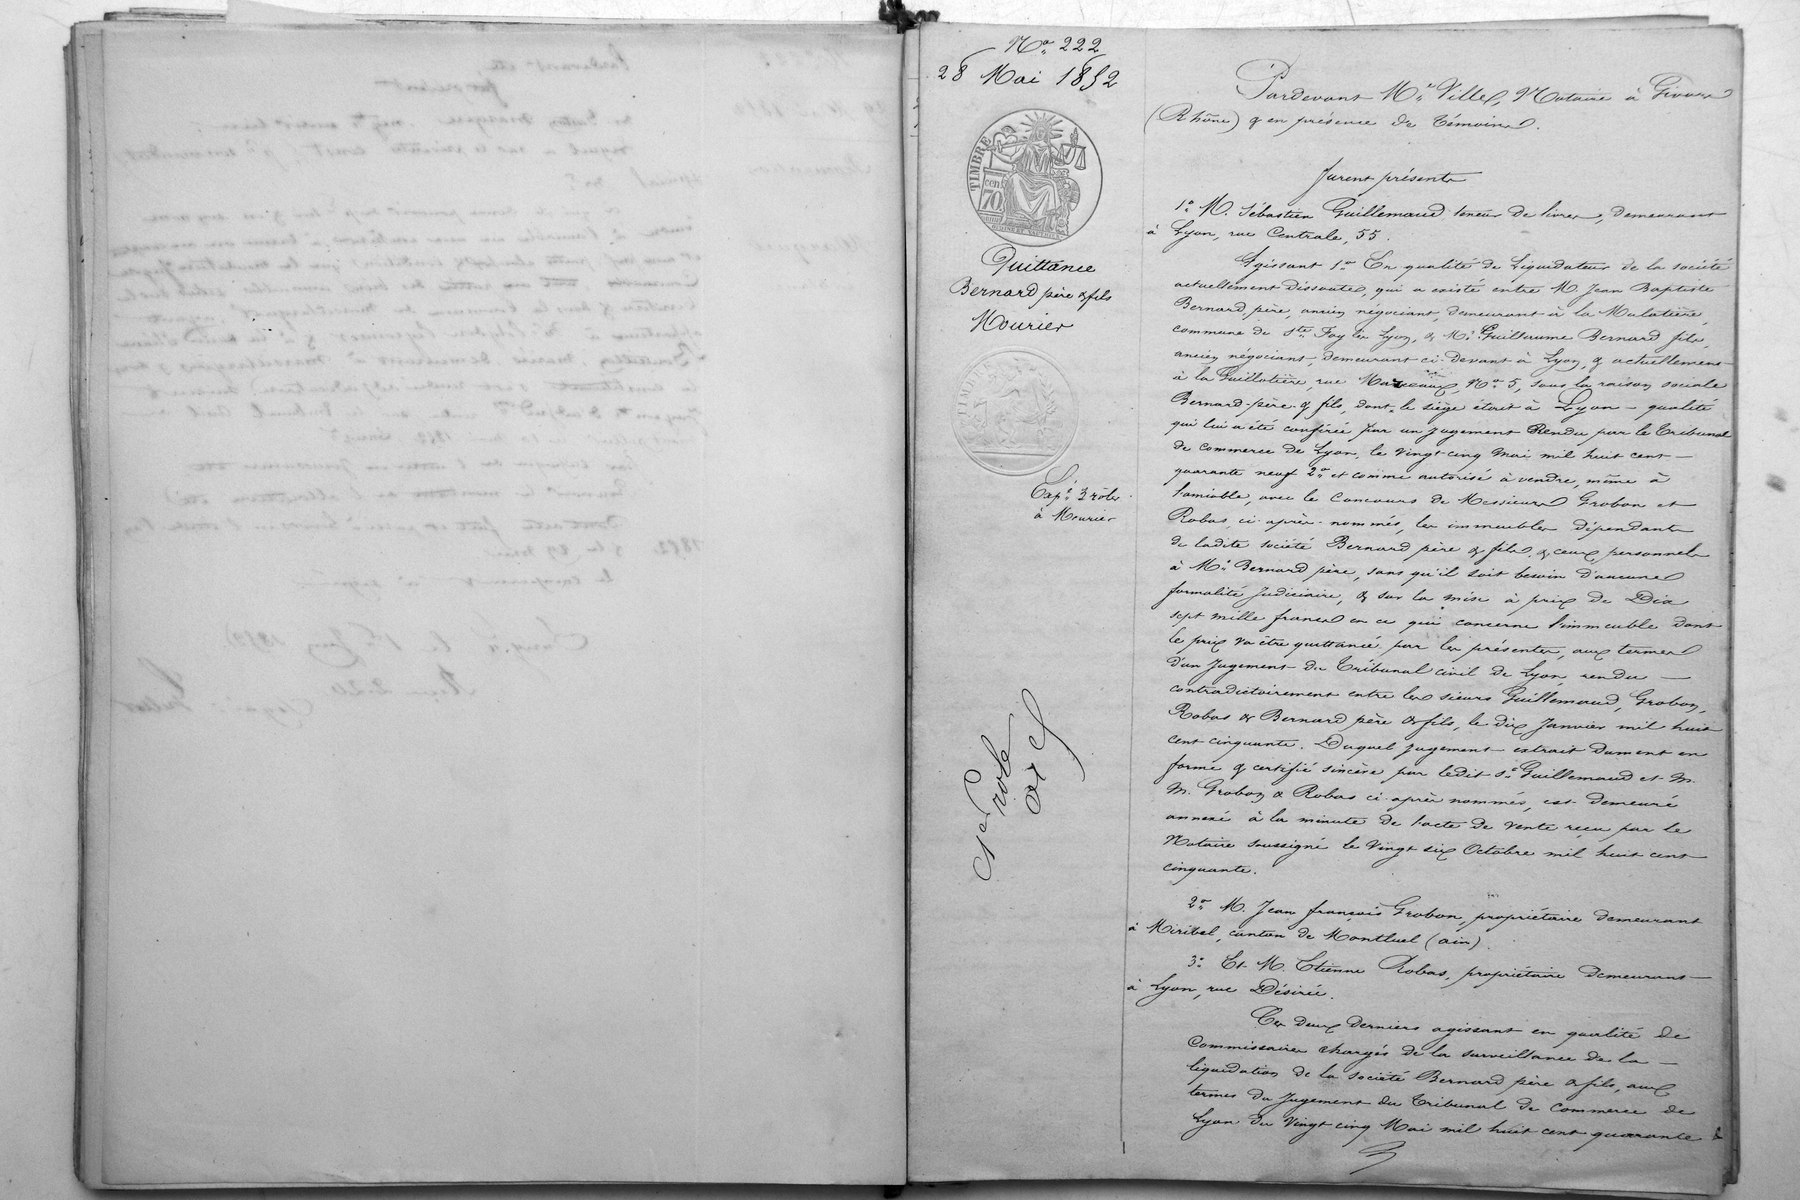 No 222
28 Mai 1852
TIMBRE
cent.
70
Quittance
Bernard père & fils
Mourier
Expé 3 rôles
à Mourier
1er role
Pardevant Me Ville, Notaire à Givors
(Rhône) & en présence de témoins.
furent présents
1o M. Sébastien Guillemaud teneur de livres, demeurant
à Lyon, rue Centrale, 55.
Agissant 1o En qualité de Liquidateur de la société
actuellement dissoute, qui a existé entre M. Jean Baptiste
Bernard père, ancien négociant, demeurant à la Mulatière,
commune de Ste Foy lès Lyon, & Mr Guillaume Bernard fils,
ancien négociant, demeurant ci-devant à Lyon, & actuellement
à la Guillotière, rue No 5, sous la raison sociale
Bernard père & fils, dont le siège était à Lyon – qualité
qui lui a été conférée par un jugement Rendu par le Tribunal
de commerce de Lyon, le vingt cinq mai mil huit cent –
quarante neuf 2o et comme autorisé à vendre, même à
l'amiable, avec le Concours de Messieurs Grobon et
Robas, ci-après nommés, les immeubles dépendants
de ladite société Bernard père & fils, & ceux personnels
à Mr Bernard père, sans qu'il soit besoin d'aucune
formalité judiciaire, & sur la mise à prix de Dix
sept mille francs en ce qui concerne l'immeuble dont
le prix va être quittancé par les présentes, aux termes
d'un jugement du Tribunal civil de Lyon rendu –
contradictoirement entre les sieurs Guillemaud, Grobon,
Robas & Bernard père & fils, le dix Janvier mil huit
cent cinquante. Duquel jugement extrait dument en
forme & certifié sincère par ledit sr Guillemaud et M.
M. Grobon & Robas ci-après nommés, est demeuré
annexé à la minute de l'acte de vente reçu par le
Notaire soussigné le vingt six Octobre mil huit cent
cinquante.
2o M. Jean françois Grobon, propriétaire demeurant
à Miribel, canton de Montluel (ain).
3o Et M. Etienne Robas, propriétaire demeurant –
à Lyon, rue Désirée.
Ces deux derniers agissant en qualité de
Commissaires chargés de la surveillance de la –
liquidation de la société Bernard père & fils, aux
termes du jugement du Tribunal de Commerce de
Lyon du vingt cinq Mai mil huit cent quarante